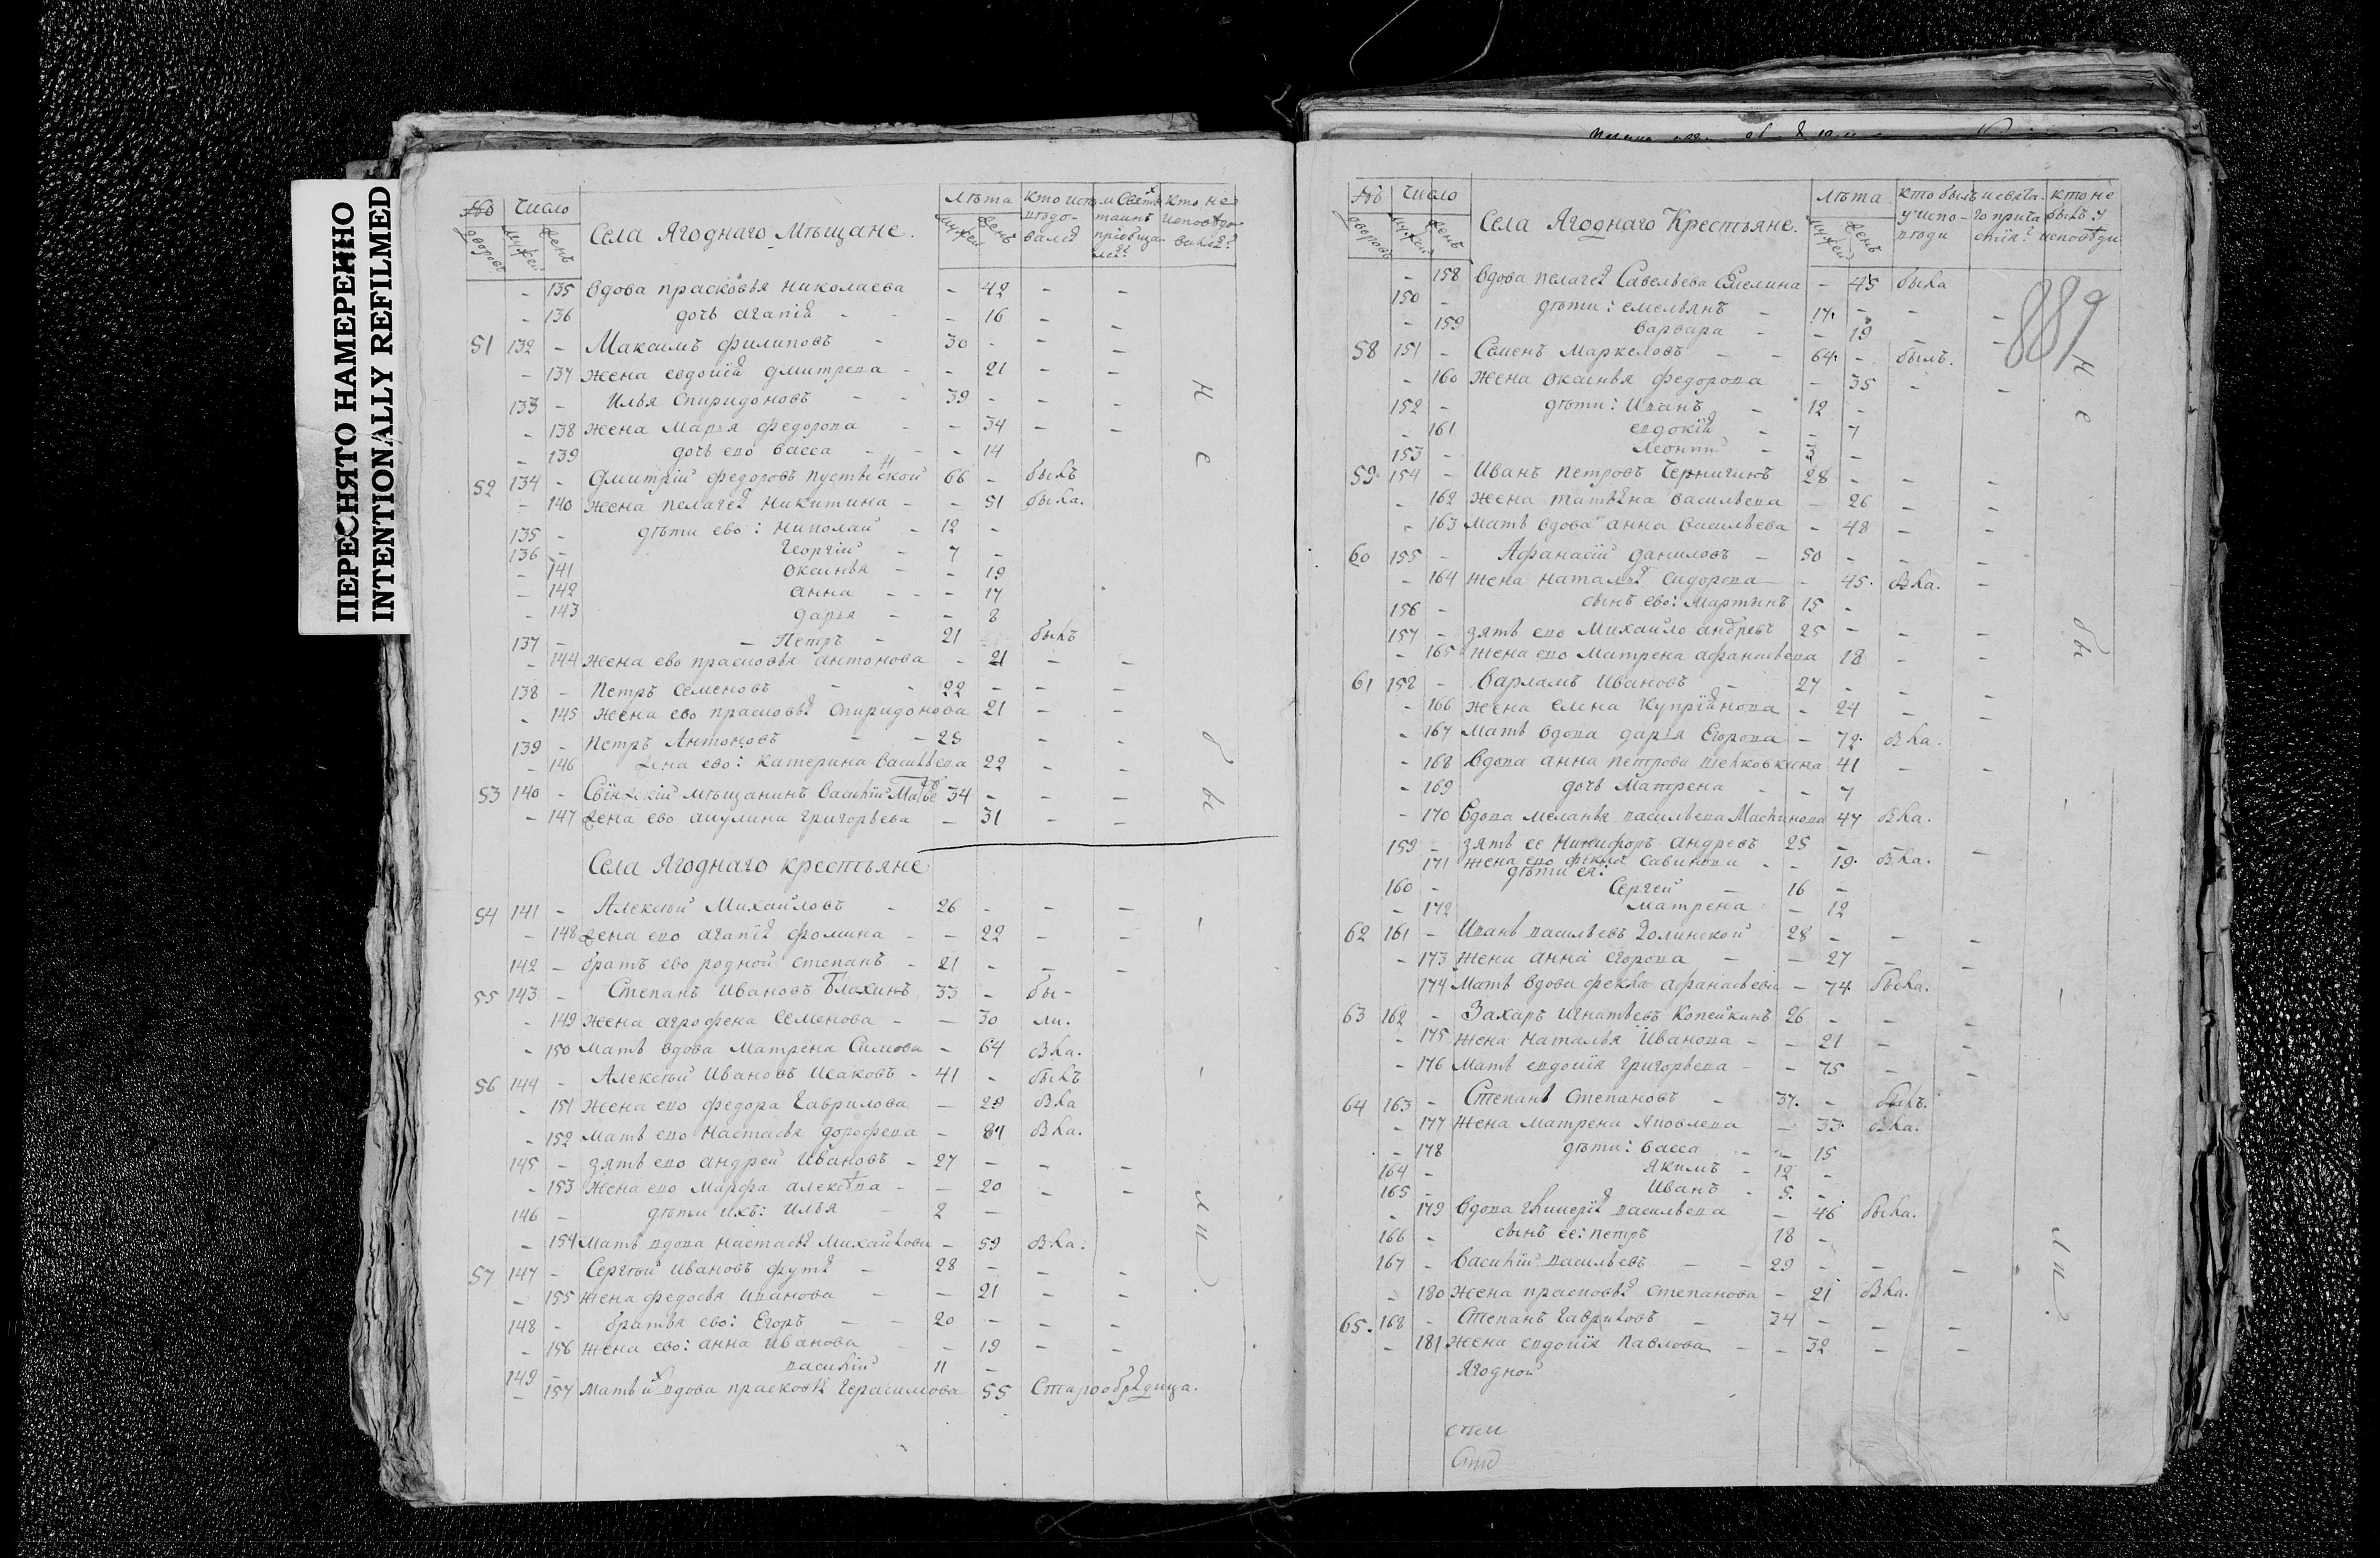 ПЕРЕСНЯТО НАМЕРЕННО
INTENTIONALLY REFILMED
№ дворовъ Число мужей женъ Села Ягоднаго Мѣщане. Лѣта мужей женъ
- 135 вдова прасковья николаева - 42 - -
- 136 дочь агапія - - - 16 - -
51 132 - Максимъ филиповъ - 30 - - -
- 137 жена евдокія дмитрева - - 21 - -
133 - Илья Спиридоновъ - - 39 - - -
- 138 жена Марья федорова - - 34 - -
- 139 дочь ево васса - - - 14
52 134 - Дмитрій федоровъ 66 - былъ
- 140 жена пелагея никитина - - 51 была.
135 - дѣти ево: николай - 12 -
136 - Георгій - 7 -
- 141 оксинья - - 19
- 142 анна - - - 17
- 143 дарья - - 8
137 - - Петръ - 21 былъ
- 144 жена ево прасковья антонова - 21 - -
138 - Петръ Семеновъ - - 22 - - -
- 145 жена ево прасковья спиридонова 21 - -
139 - Петръ Антоновъ - - 25 - -
- 146 жена ево: катерина васильева 22 - -
53 140 - мѣщанинъ Василій 34 - - -
- 147 жена ево акулина григорьева - 31 - -
Села Ягоднаго крестьяне
54 141 - Алексѣй Михайловъ - 26 - - -
- 148 жена ево агапія фомина - - 22 - -
142 - братъ ево родной степанъ - 21 - - -
55 143 - Степанъ Ивановъ Блохинъ 33 - бы-
- 149 жена агрофена Семенова - - 30 ли.
- 150 мать вдова матрена - 64 вла.
56 144 - Алексѣй Ивановъ Исаковъ - 41 - былъ
- 151 жена ево федора гаврилова - 29 вла
- 152 мать ево настасья дорофева - 81 вла.
145 - зять ево андрей Ивановъ - 27 - - -
- 153 жена ево марфа алексѣва - - 20 - -
146 - дѣти ихъ: илья - 2 -
- 154 мать вдова настасья михайлова - 59 вла.
57 147 - Сергѣй ивановъ - 28 - - -
- 155 жена федосья иванова - - 21 - -
148 - братья ево: Егоръ - - 20 - - -
- 156 жена ево: анна иванова - - 19 - -
149 - василій 11 -
- 157 мать ихъ вдова прасковья Герасимова 55 Старообрядица.
не бы - - ли.
№ дворовъ Число мужей женъ Села Ягоднаго Крестьяне. Лѣта мужей женъ кто былъ у испо-вѣди и свята-го прича-стія? кто не былъ у исповѣди
889
- 158 вдова пелагея Савельева Емелина - 45 была
150 - дѣти: емельянъ - 17. - - -
- 159 варвара - - 19 - -
58 151 - Семенъ Маркеловъ - - 64. - былъ.
- 160 жена оксинья федорова - 35 - -
152 - дѣти: Иванъ - 12 -
- 161 евдокія - - 7
153 - леонтій - 3 -
59 154 - Иванъ петровъ Чернигинъ 28 - - -
- 162 жена татьяна васильева - 26 - -
- 163 мать вдова анна васильева - 48 - -
60 155 - Афанасій даниловъ - 50 - - -
- 164 жена наталья сидорова - - 45. вла. -
156 - сынъ ево: мартынъ 15 -
157 - зять ево михайло андревъ 25 - - -
- 165 жена ево матрена афанасьева 18 - -
61 158 - Варламъ ивановъ - 27 - - -
- 166 жена елена купріянова - 24 - -
- 167 мать вдова дарья Егорова - 72. вла.
- 168 вдова анна петрова 41 - -
- 169 дочь матрена - - 7
- 170 вдова меланья васильева 47 вла.
159 - зять ее никифоръ андревъ 25 - - -
- 171 жена ево фекла савинова - - 19. вла.
дѣти ея:
160 - Сергей - 16 -
- 172 матрена - 12
62 161 - Иванъ васильевъ Долинской 28 - - -
- 173 жена анна егорова - - 27 - -
174 мать вдова фекла афанасьева - 74. была.
63 162 - Захаръ игнатьевъ Копейкинъ 26 - - -
- 175 жена наталья Иванова - - 21 - -
- 176 мать евдокія григорьева - - 75 - -
64 163 - Степанъ Степановъ - 37. - былъ.
- 177 жена матрена яковлева - 33. вла.
- 178 дѣти: васса - - 15
164 - якимъ - 12 -
165 - иванъ - 5. -
- 179 вдова гликерія васильева - 46 была.
166 - сынъ ее: петръ 18 -
167 - василій васильевъ - - 29 - - -
- 180 жена прасковья степанова - 21 вла.
65. 168 - Степанъ гавриловъ - 34 - - -
- 181 жена евдокія павлова - - 32 - -
Ягодной
не бы - - ли.